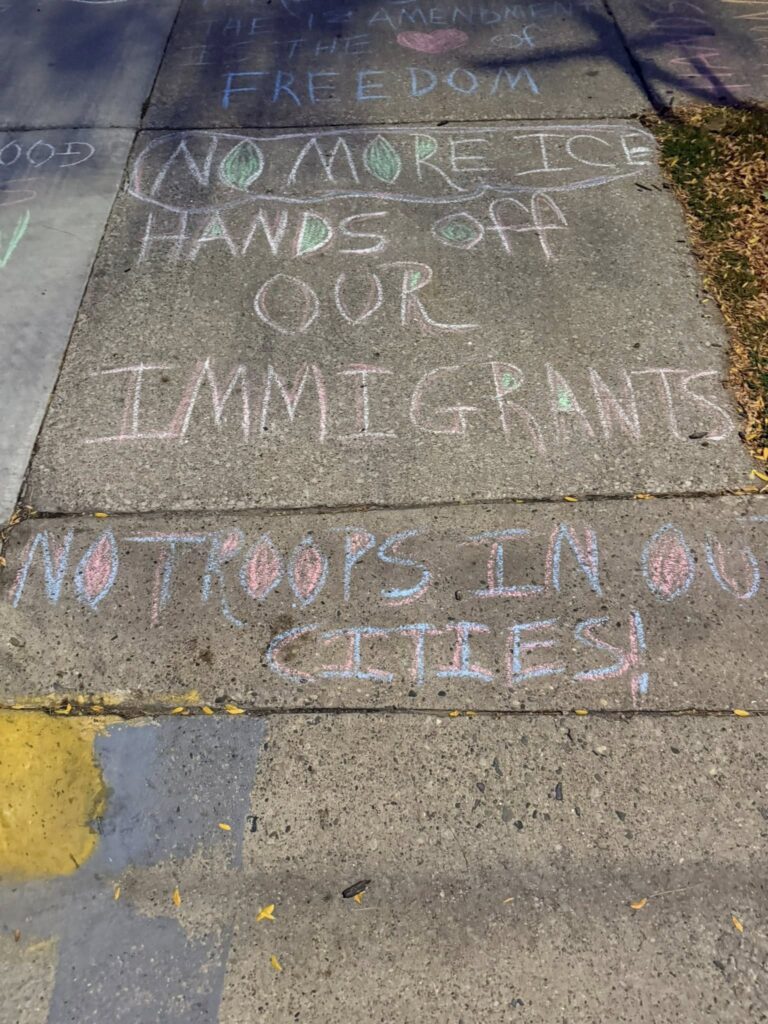 THE 1st AMENDMENT
IS THE of
FREEDOM
OOD
NO MORE ICE
HANDS Off
OUR
IMMIGRANTS
NO TROOPS IN OU
CITIES!